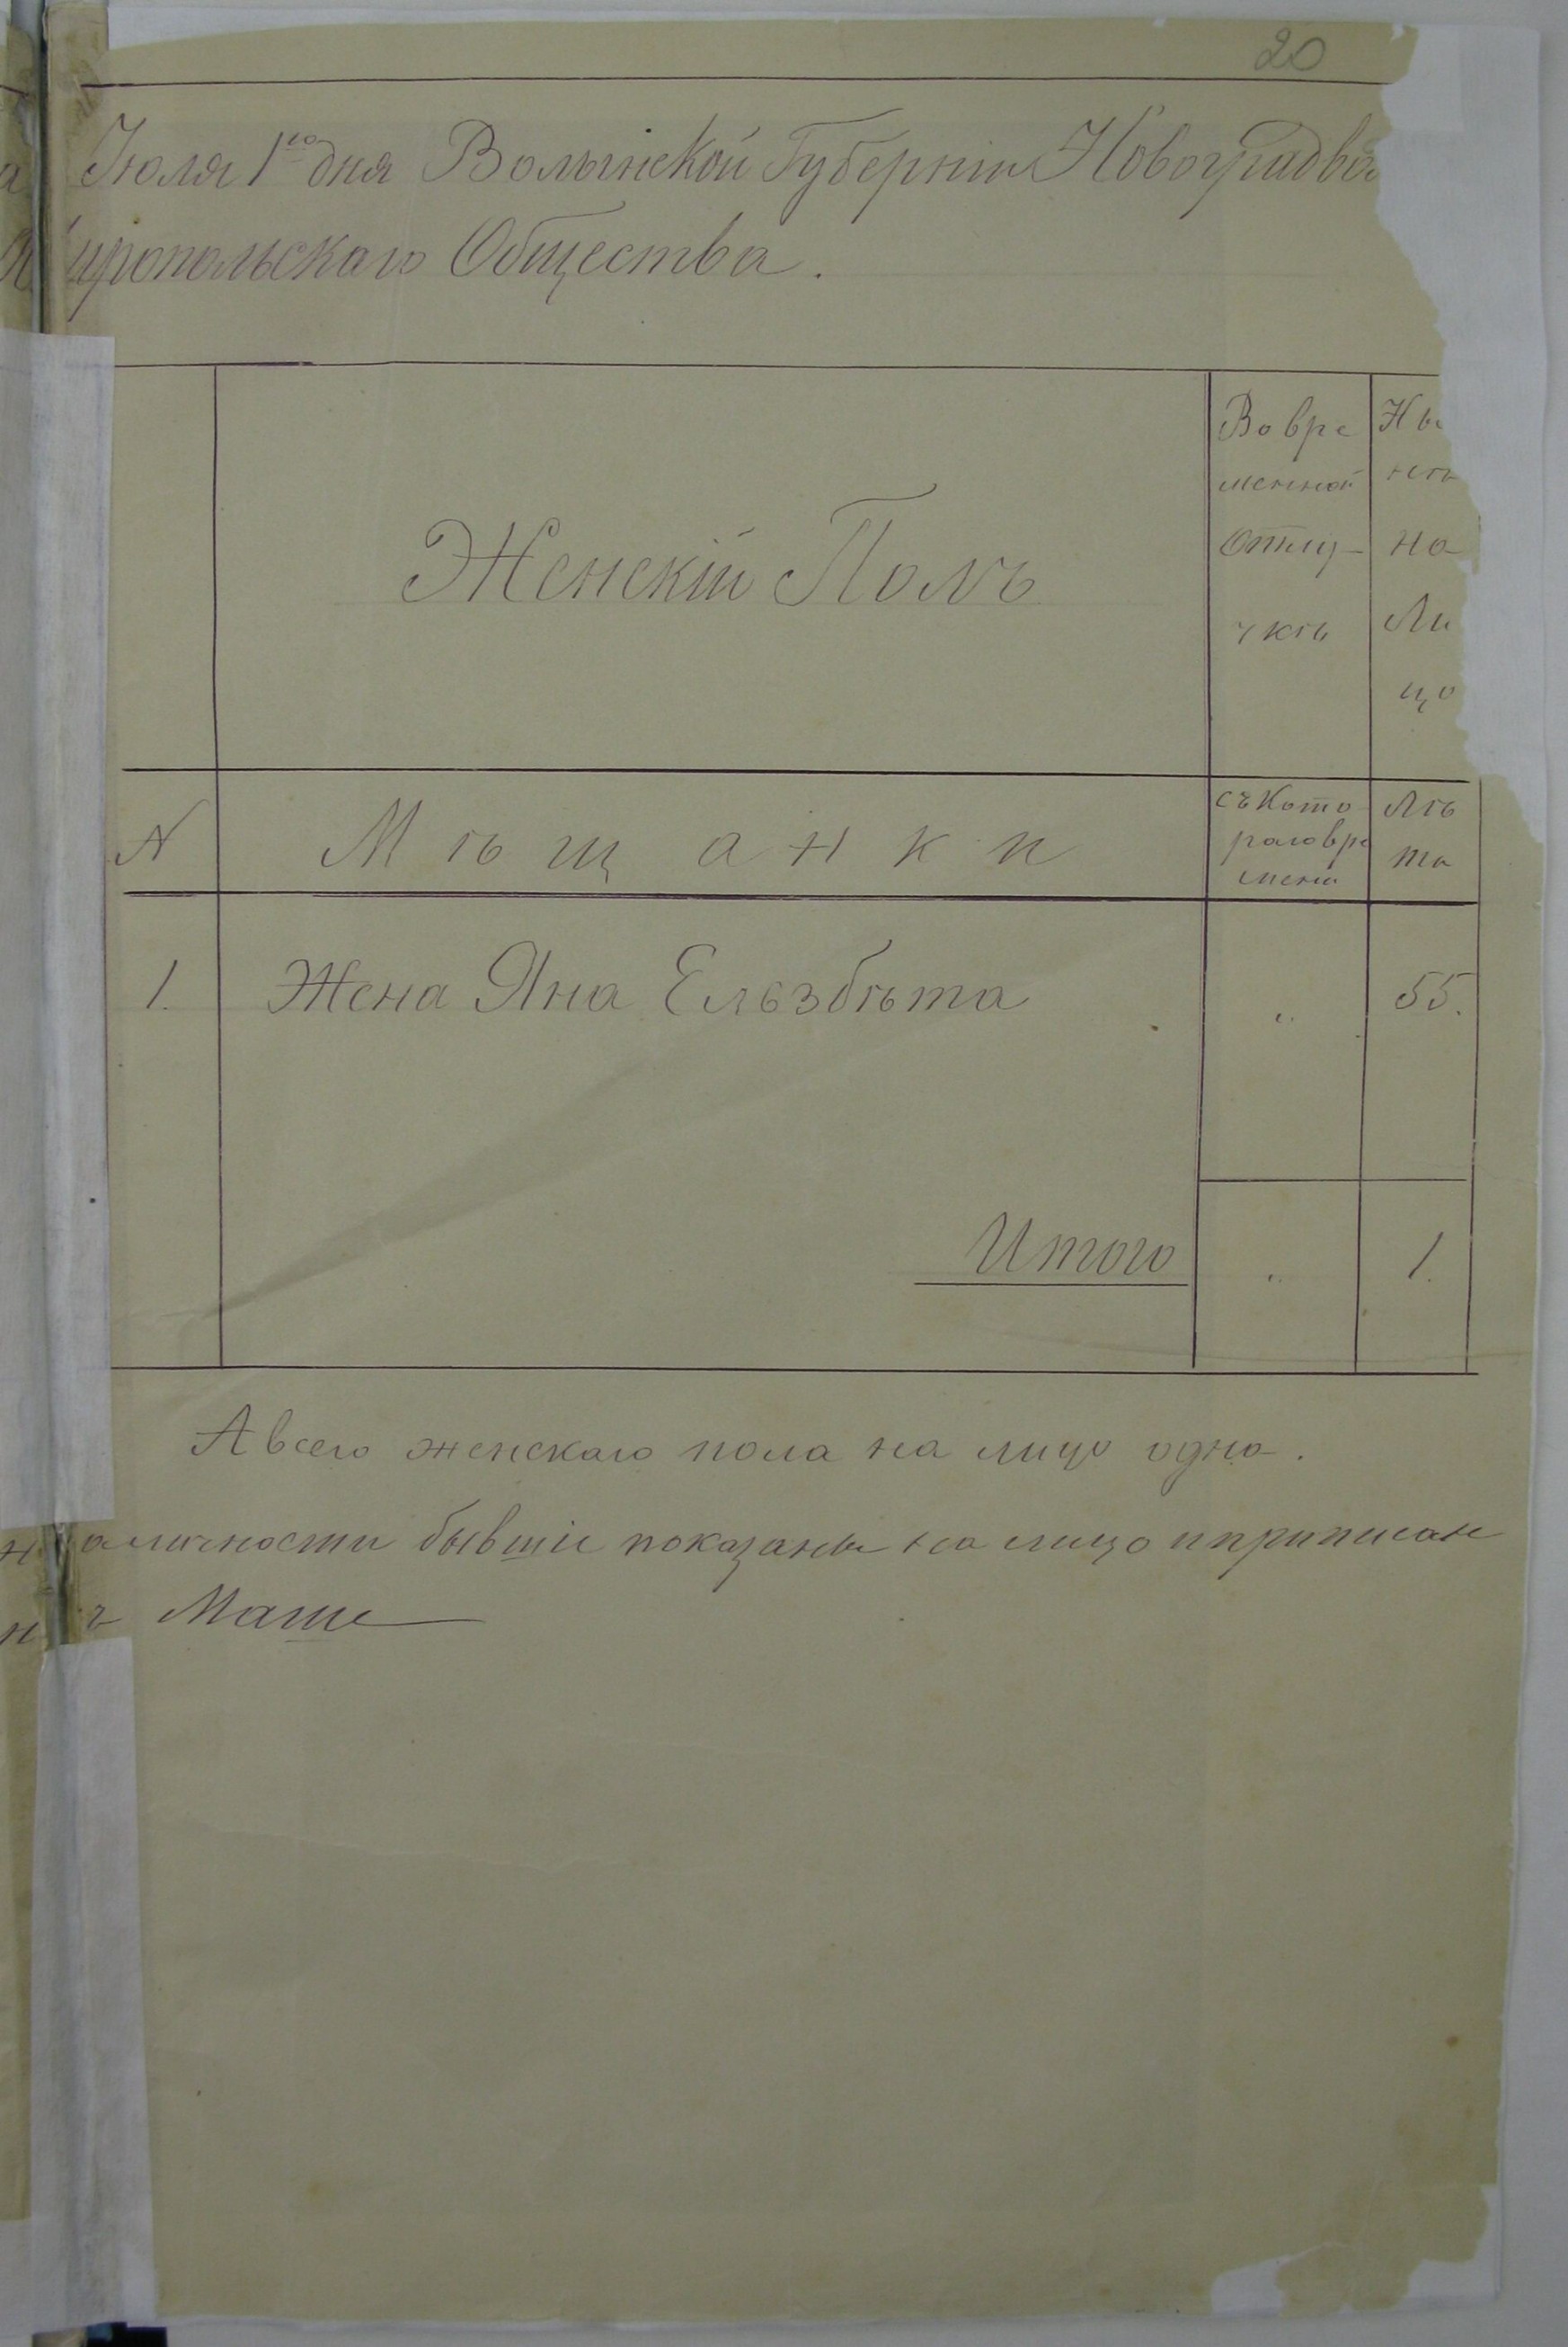 20
Іюля 1го дня Волынской Губерніи Новоградво
иропольскаго Общества.
Женскій Полъ
Во вре
менной
Отлу-
чкѣ
Ны
нѣ
на
Ли
цо
N
Мѣщанки
съ Кото
раго вре
мени
Лѣ
та
1. Жена Яна Ельзбѣта " 55.
Итого " 1.
А всего женскаго пола на лицо одна.
аличности бывшіе показаны на лицо и приписан